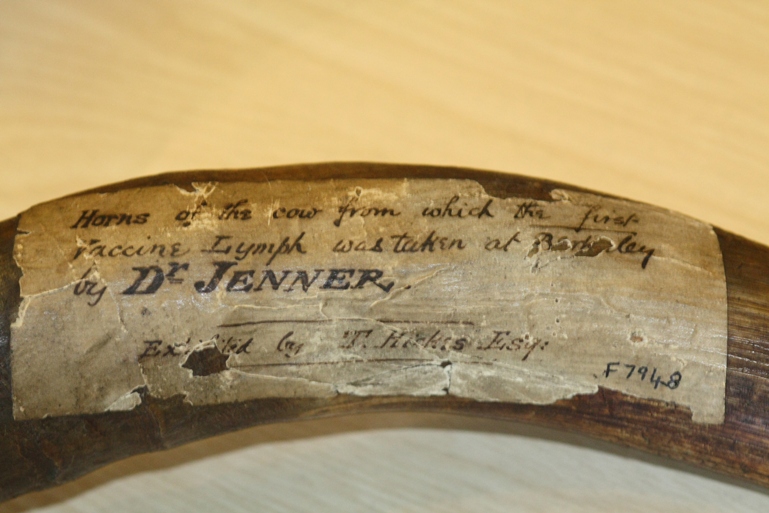 Horns of the cow from which the first
Vaccine Lymph was taken at Berkeley
by Dr JENNER.
Exhibited by T. Hicks Esq:
F7948